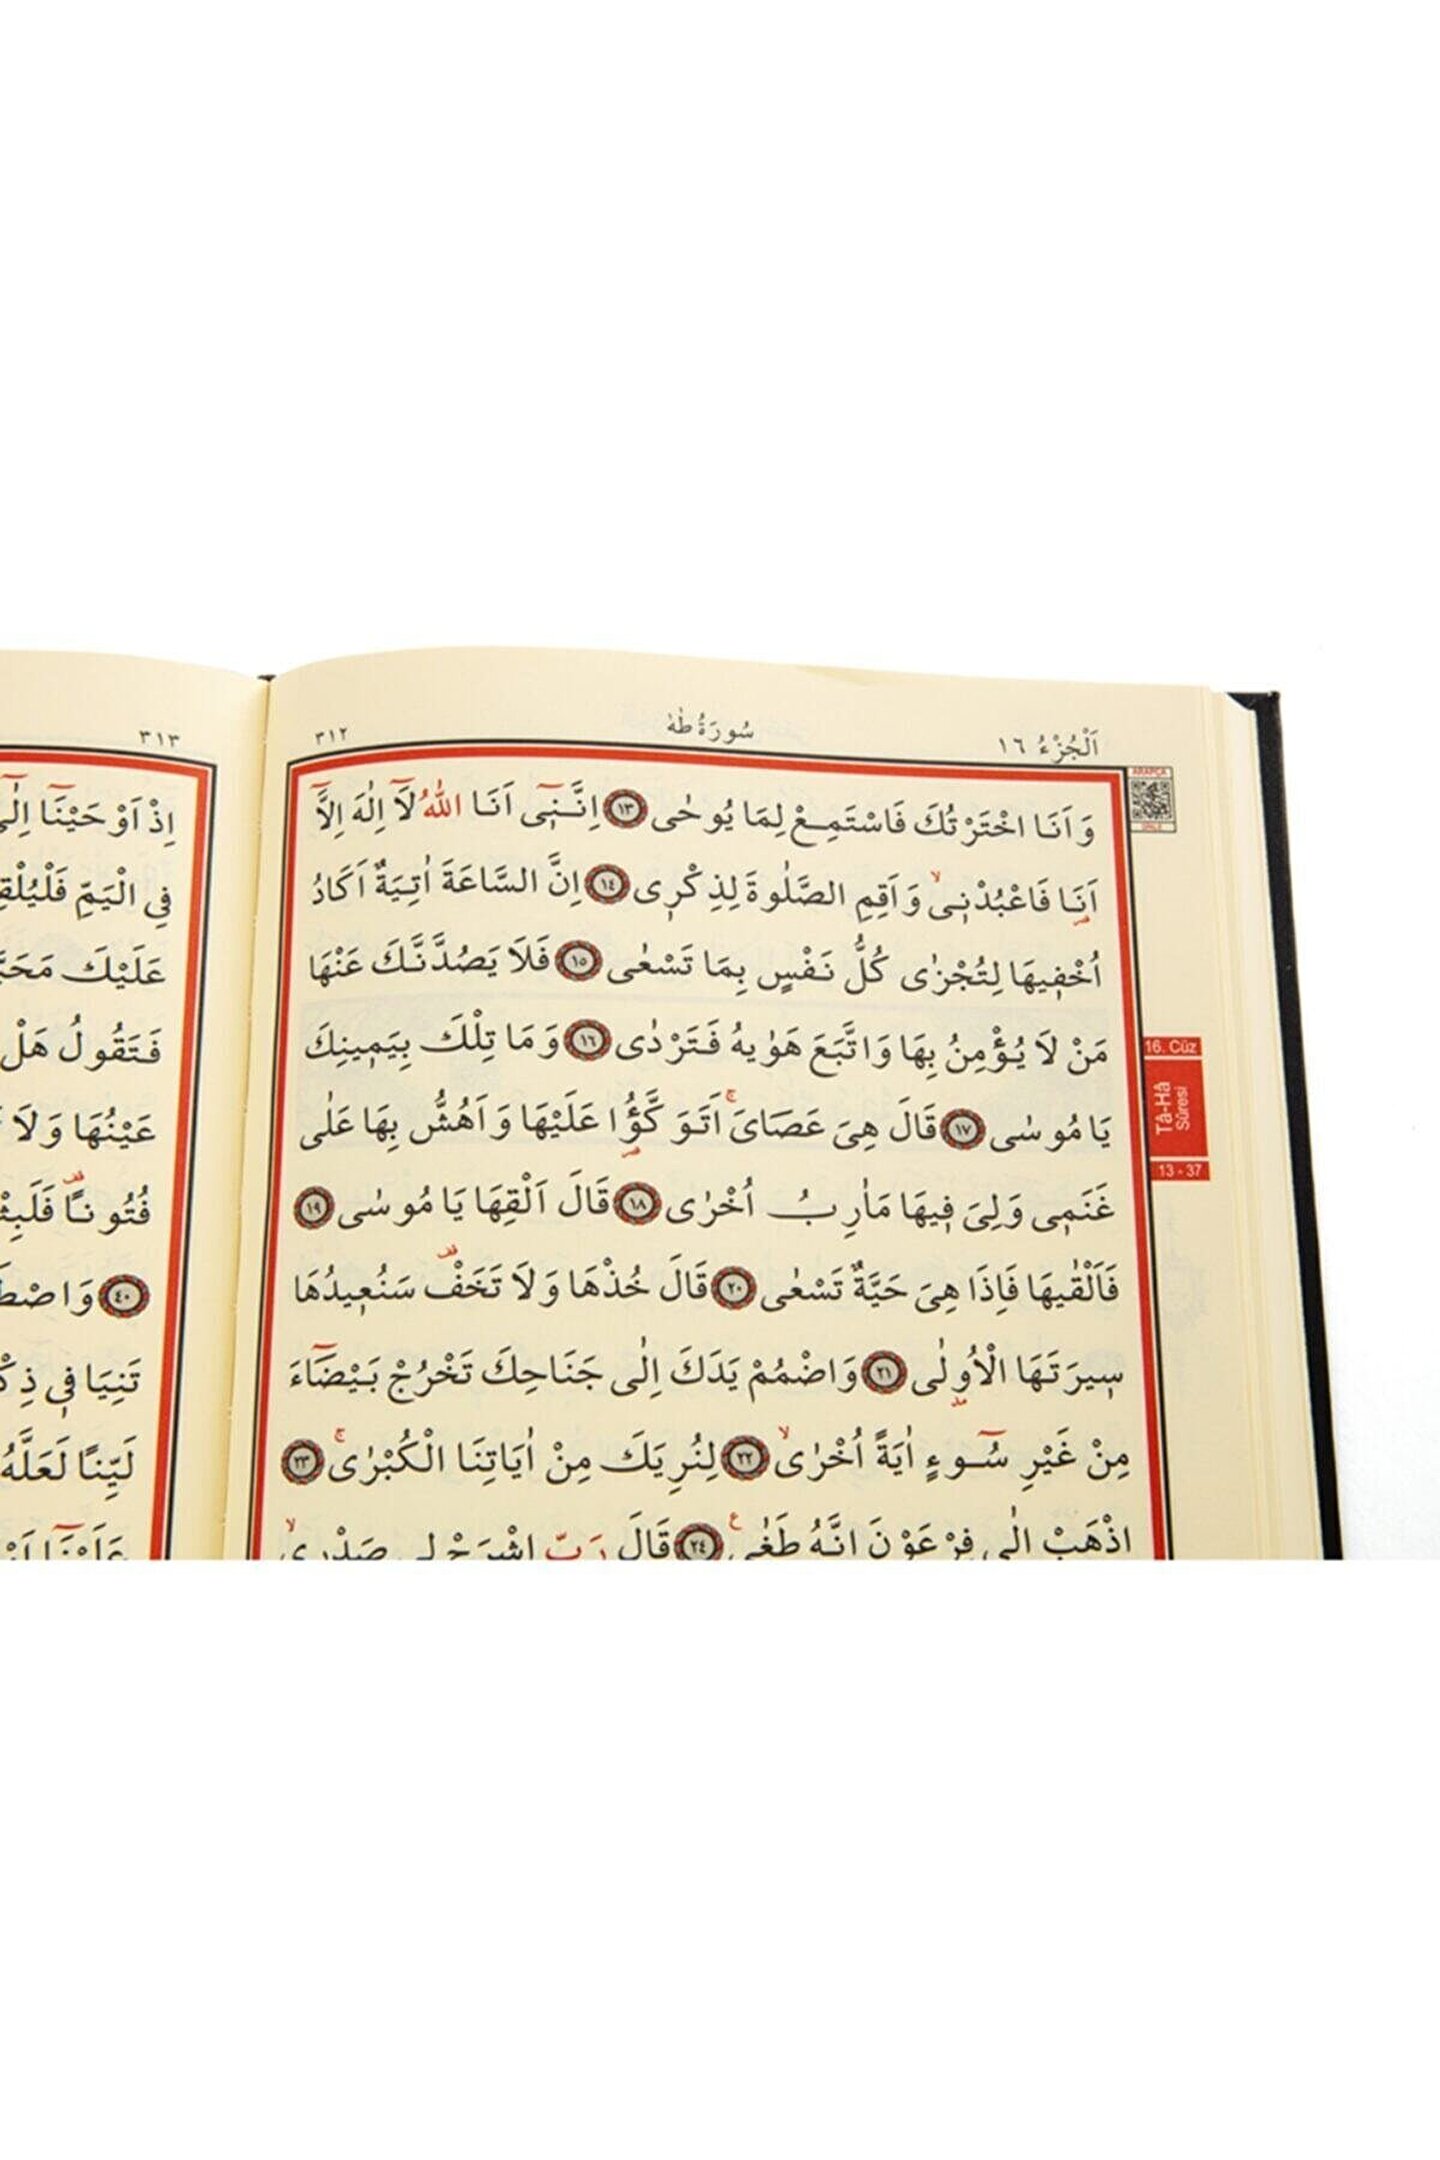 اَلْجُزْءُ ١٦
سُورَةُ طٰهٰ
٣١٢
وَاَنَا اخْتَرْتُكَ فَاسْتَمِعْ لِمَا يُوحٰى ١٣ اِنَّنٖٓى اَنَا اللّٰهُ لَٓا اِلٰهَ اِلَّٓا
اَنَا۬ فَاعْبُدْنٖىۙ وَاَقِمِ الصَّلٰوةَ لِذِكْرٖى ١٤ اِنَّ السَّاعَةَ اٰتِيَةٌ اَكَادُ
اُخْفٖيهَا لِتُجْزٰى كُلُّ نَفْسٍ بِمَا تَسْعٰى ١٥ فَلَا يَصُدَّنَّكَ عَنْهَا
مَنْ لَا يُؤْمِنُ بِهَا وَاتَّبَعَ هَوٰيهُ فَتَرْدٰى ١٦ وَمَا تِلْكَ بِيَمٖينِكَ
يَا مُوسٰى ١٧ قَالَ هِىَ عَصَاىَۚ اَتَوَكَّؤُ۬ا عَلَيْهَا وَاَهُشُّ بِهَا عَلٰى
غَنَمٖى وَلِىَ فٖيهَا مَاٰرِبُ اُخْرٰى ١٨ قَالَ اَلْقِهَا يَا مُوسٰى ١٩
فَاَلْقٰيهَا فَاِذَا هِىَ حَيَّةٌ تَسْعٰى ٢٠ قَالَ خُذْهَا وَلَا تَخَفْ۠ سَنُعٖيدُهَا
سٖيرَتَهَا الْاُو۫لٰى ٢١ وَاضْمُمْ يَدَكَ اِلٰى جَنَاحِكَ تَخْرُجْ بَيْضَٓاءَ
مِنْ غَيْرِ سُٓوءٍ اٰيَةً اُخْرٰىۙ ٢٢ لِنُرِيَكَ مِنْ اٰيَاتِنَا الْكُبْرٰىۚ ٢٣
اِذْهَبْ اِلٰى فِرْعَوْنَ اِنَّهُ طَغٰى ٢٤ قَالَ رَبِّ اشْرَحْ لٖى صَدْرٖىۙ
ARAPÇA
16. Cüz
Tâ-Hâ
Sûresi
13 - 37
٣١٣
اِذْ اَوْحَيْنَٓا اِلٰٓى
فِى الْيَمِّ فَلْيُلْقِ
عَلَيْكَ مَحَبَّ
فَتَقُولُ هَلْ
عَيْنُهَا وَلَا
فُتُونًا۠ فَلَبِثْ
٤٠ وَاصْطَ
تَنِيَا فٖى ذِكْ
لَيِّنًا لَعَلَّهُ
عَلَيْنَٓا اَوْ